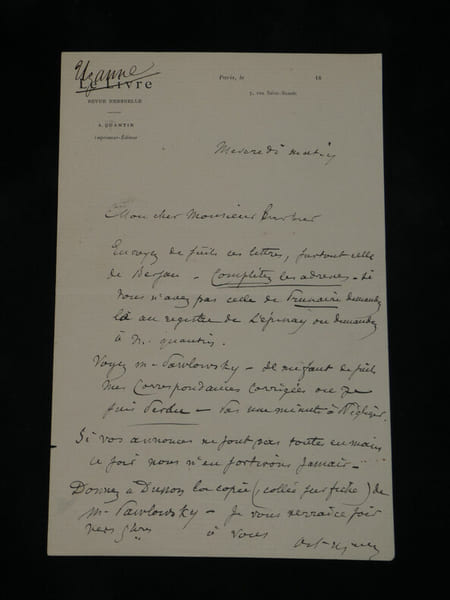 Uzanne
Le Livre
REVUE MENSUELLE
A. QUANTIN
Imprimeur-Éditeur
Paris, le 18
7, rue Saint-Benoit
Mercredi matin
Mon cher Monsieur
Envoyez de suite ces lettres, surtout celle
de - Complétez les adresses - Si
vous n'avez pas celle de demandez
là au registre de L'épinay ou demandez
à M. Quantin.
Voyez M. Pawlowsky - Il me faut de suite
mes correspondances corrigées ou je
suis Perdu - Pas une minute à négliger.
Si vos annonces ne sont pas toute en mains
ce soir nous n'en sortirons jamais -
Donnez à la copie (collée sur fiche) de
M. Pawlowsky - Je vous verrai ce soir
vers
à vous